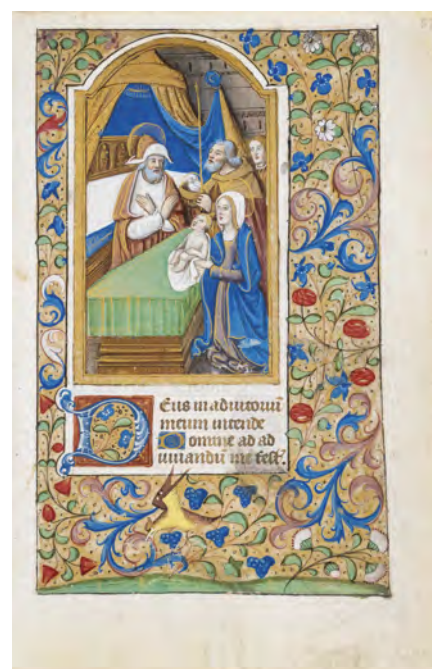 Deus in adiutoriũ
meum intende
Domine ad ad
iuuandũ me fest.